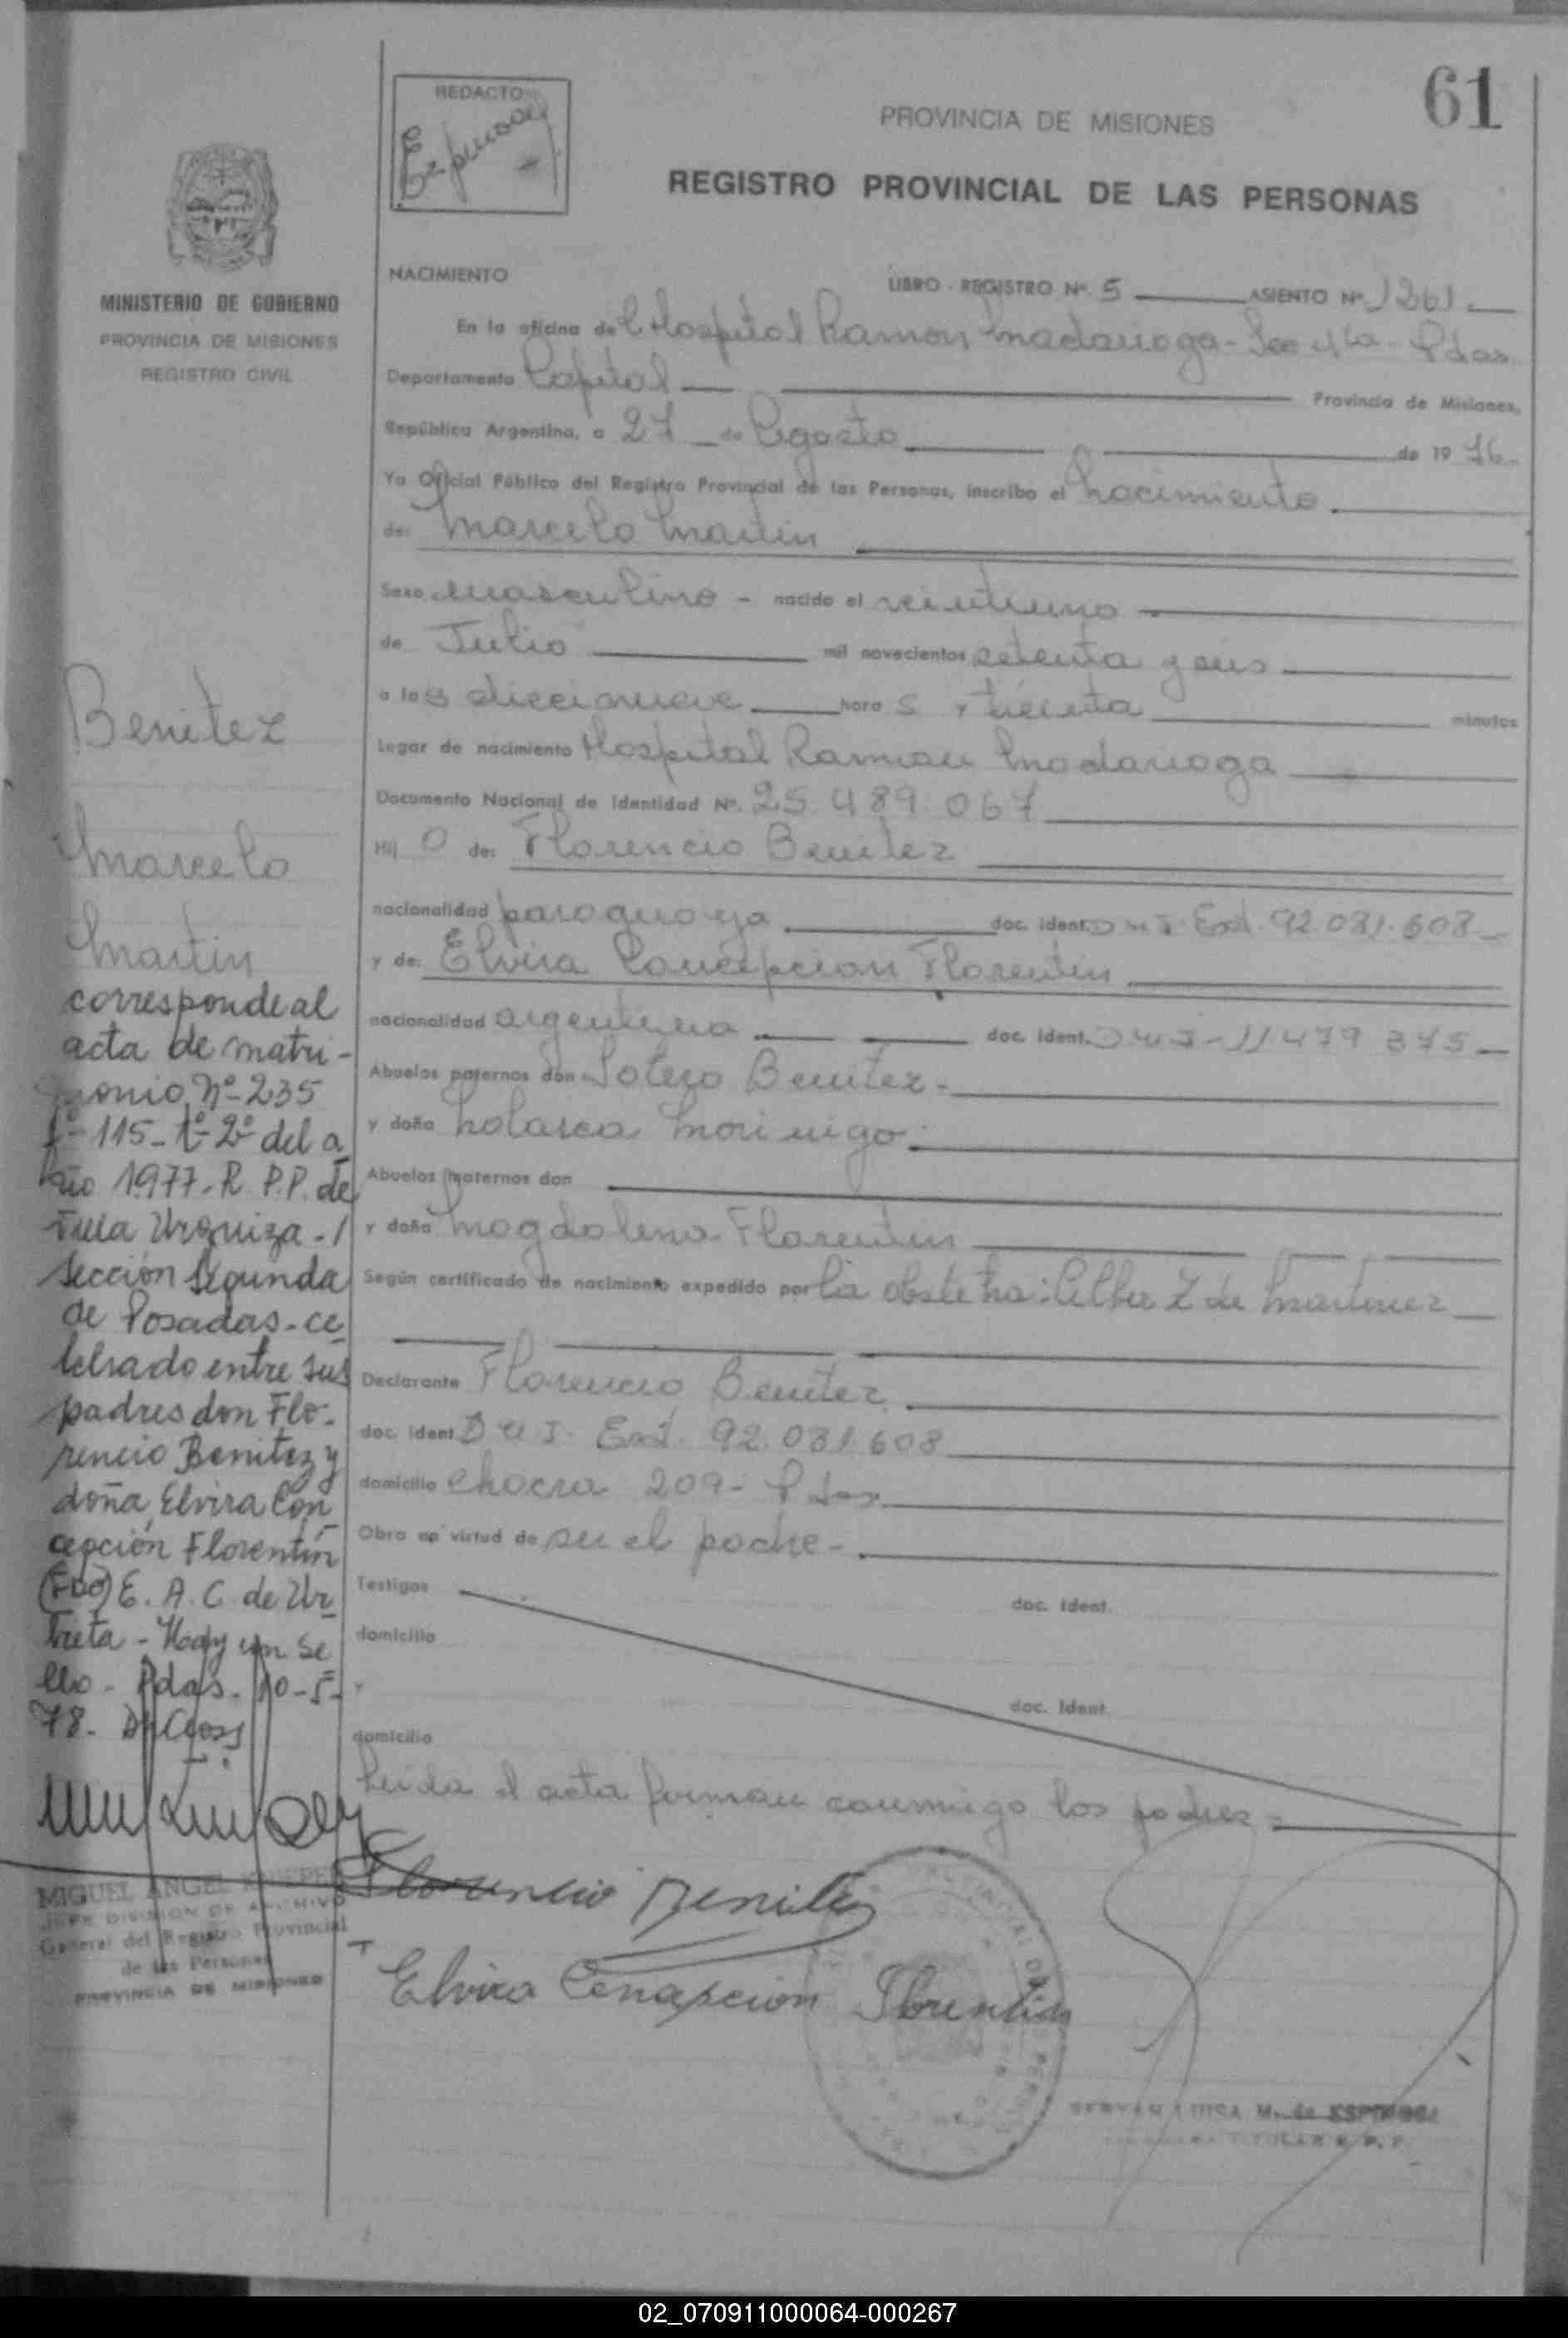 61
REDACTO
Espinosa
PROVINCIA DE MISIONES
REGISTRO PROVINCIAL DE LAS PERSONAS
MINISTERIO DE GOBIERNO
PROVINCIA DE MISIONES
REGISTRO CIVIL
NACIMIENTO
LIBRO - REGISTRO Nº 5 ASIENTO Nº 1261
En la oficina del Hospital Ramon Madariaga - Sec 4ta - Pdas
Departamento Capital Provincia de Misiones,
República Argentina, a 27 de Agosto de 1976
Yo Oficial Público del Registro Provincial de las Personas, inscribo el Nacimiento
de: Marcelo Martin
Sexo masculino - nacido el veintiuno
de Julio mil novecientos setenta y seis
a las diecinueve horas y treinta minutos
Lugar de nacimiento Hospital Ramon Madariaga
Documento Nacional de Identidad Nº. 25.489.067
Hijo de: Florencio Benitez
nacionalidad paraguaya doc. ident. DNI Ext. 92.081.608
y de: Elvira Concepcion Florentin
nacionalidad argentina doc. ident. DNI - 11 479 375
Abuelos paternos don Sotero Benitez
y doña Nolasca Morinigo
Abuelos maternos don
y doña Magdalena Florentin
Según certificado de nacimiento expedido por la obstetra: Z de Martinez
Declarante Florencio Benitez
doc. ident DNI - Ext. 92.081.608
domicilio Chacra 209 - Pdas
Obra en virtud de ser el padre -
Testigos doc. ident.
domicilio
y doc. ident.
domicilio
Leida el acta firman conmigo los padres
Florencio Benitez
Elvira Concepcion Florentin
Benitez
Marcelo
Martin
corresponde al
acta de matri-
monio Nº 235
fº - 115 - tº 2º del a
ño 1977 - R. P.P. de
Villa Urquiza - /
sección segunda
de Posadas - ce
lebrado entre sus
padres don Flo-
rencio Benitez y
doña Elvira Con
cepción Florentín
(Fdo) E. A. C. de Ur
rieta - Hay un se
llo - Pdas. 10-5-
78.
MIGUEL ANGEL
JEFE DIVISION DE ARCHIVO
General del Registro Provincial
de las Personas
PROVINCIA DE MISIONES
LUISA M. de ESPINOSA
TITULAR R. P. P.
02_070911000064-000267